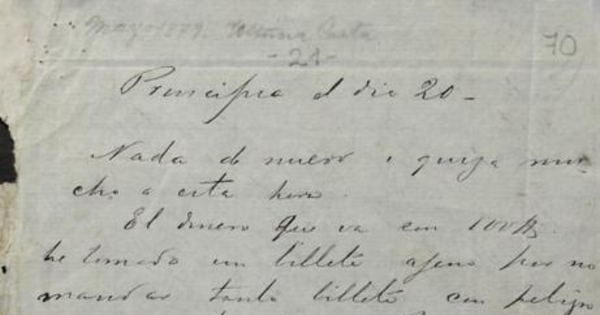 Mayo 1879. Ultima Carta
70
- 21 -
Principia el dia 20 -
Nada de nuevo i quiza mu-
cho a esta hora.
El dinero que va son 100 $.
he tomado un billete ajeno por no
mandar tanto billete con peligro